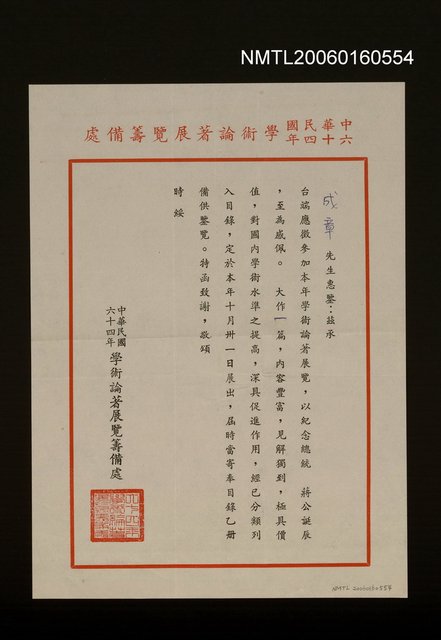 NMTL20060160554
中華民國六十四年學術論著展覽籌備處
成章 先生惠鑒：茲承
台端應徵參加本年學術論著展覽，以紀念總統 蔣公誕辰
，至為感佩。 大作一篇，內容豐富，見解獨到，極具價
值，對國內學術水準之提高，深具促進作用，經已分類列
入目錄，定於本年十月卅一日展出，屆時當寄奉目錄乙冊
備供鑒覽。特函致謝，敬頌
時綏
中華民國六十四年 學術論著展覽籌備處
NMTL 20060160554